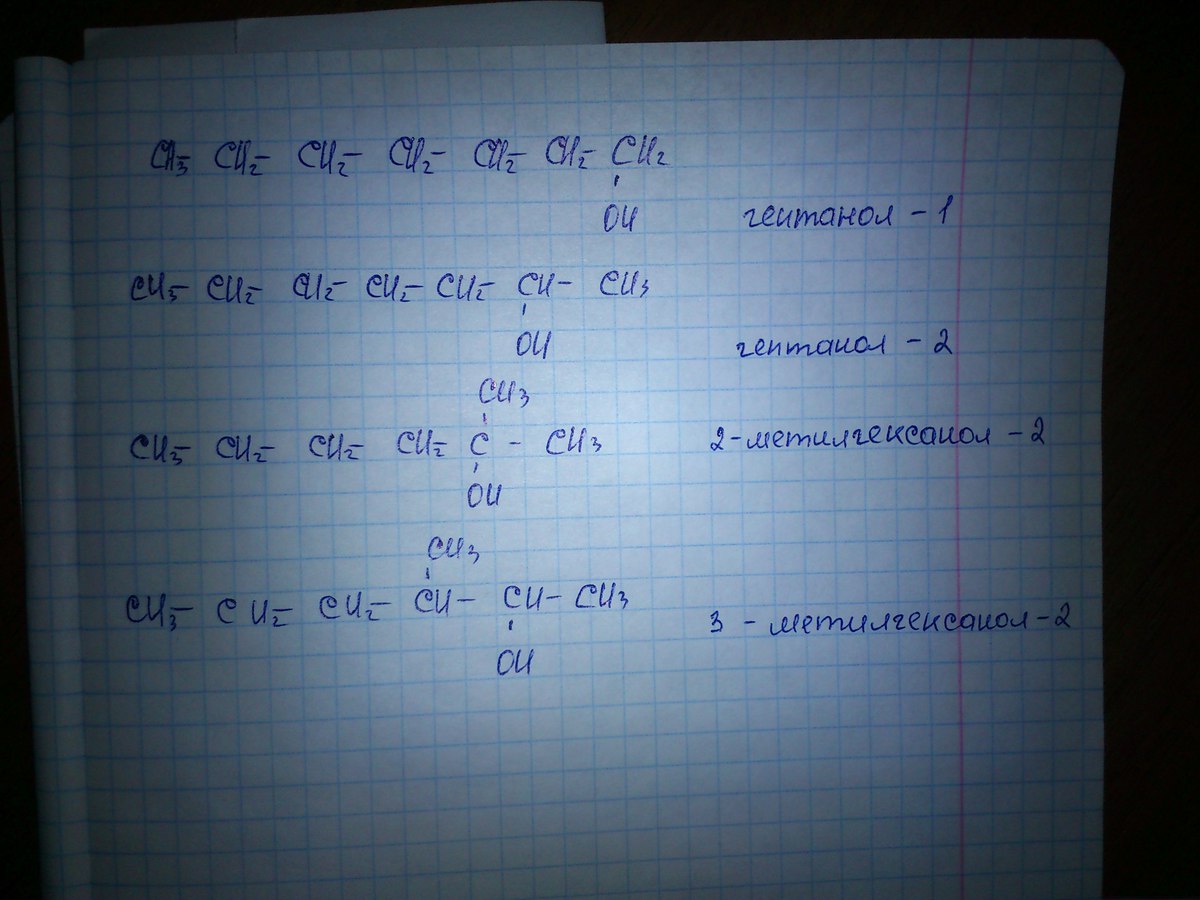 CH₃- CH₂- CH₂- CH₂- CH₂- CH₂- CH₂
OH гептанол - 1
CH₃- CH₂- CH₂- CH₂- CH₂- CH- CH₃
OH гептанол - 2
CH₃
CH₃- CH₂- CH₂- CH₂- C - CH₃ 2-метилгексанол - 2
OH
CH₃
CH₃- CH₂- CH₂- CH- CH- CH₃ 3 - метилгексанол-2
OH